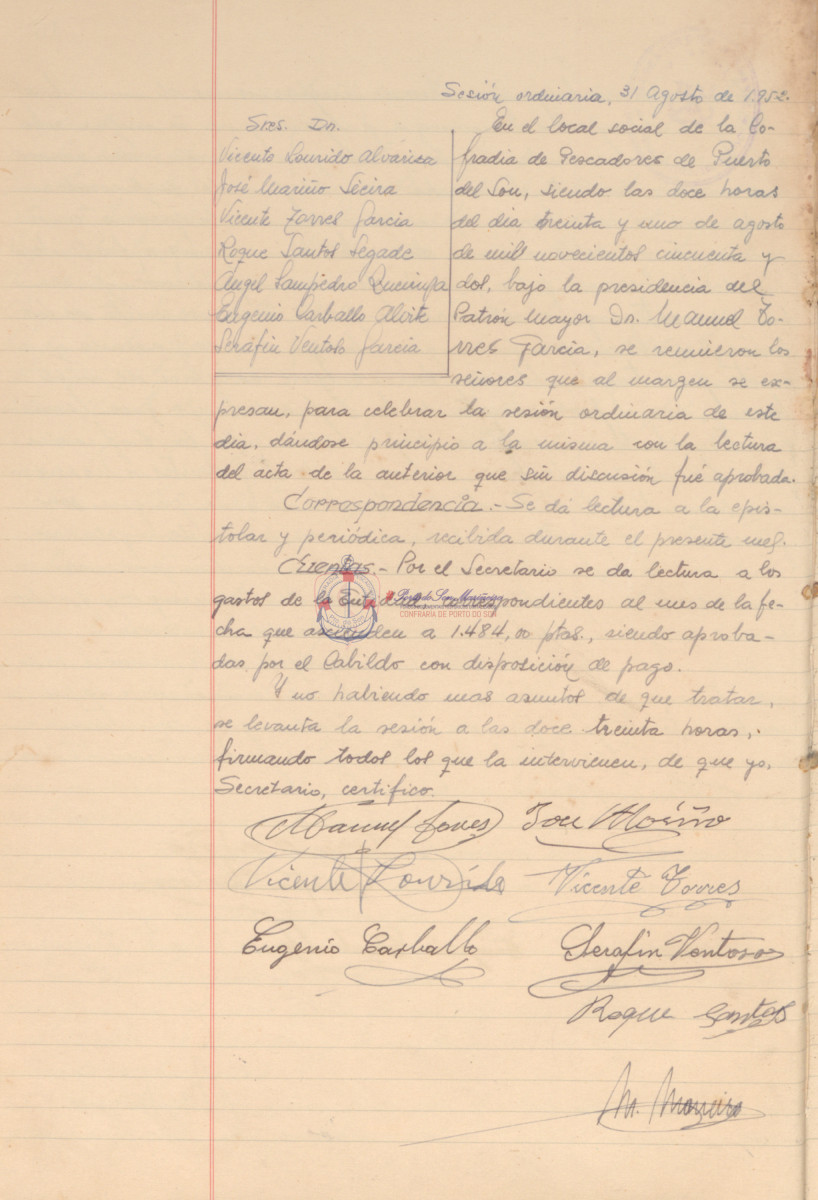 Sesión ordinaria, 31 agosto de 1.952.
Sres. Dn.
Vicente Lourido Alvariza
José Mariño Sieira
Vicente Torres Garcia
Roque Santos Segade
Angel Sampedro
Eugenio Carballo Alvite
Serafin Ventoso Garcia
En el local social de la Co-
fradia de Pescadores de Puerto
del Son, siendo las doce horas
del dia treinta y uno de agosto
de mil novecientos cincuenta y
dos, bajo la presidencia del
Patrón Mayor Dn. Manuel To-
rres Garcia, se reunieron los
señores que al margen se ex-
presan, para celebrar la sesión ordinaria de este
dia, dándose principio a la misma con la lectura
del acta de la anterior que sin discusión fué aprobada.
Correspondencia.- Se dá lectura a la epis-
tolar y periódica, recibida durante el presente mes.
Cuentas.- Por el Secretario se da lectura a los
gastos de la Entidad correspondientes al mes de la fe-
cha que ascienden a 1.484,00 ptas., siendo aproba-
das por el Cabildo con disposición de pago.
Y no habiendo mas asuntos de que tratar,
se levanta la sesión a las doce treinta horas,
firmando todos los que la intervienen, de que yo,
Secretario, certifico.
CONFRARIA DE PORTO DO SON
Manuel Torres Jose Mariño
Vicente Lourido Vicente Torres
Eugenio Carballo Serafin Ventoso
Roque Santos
M.